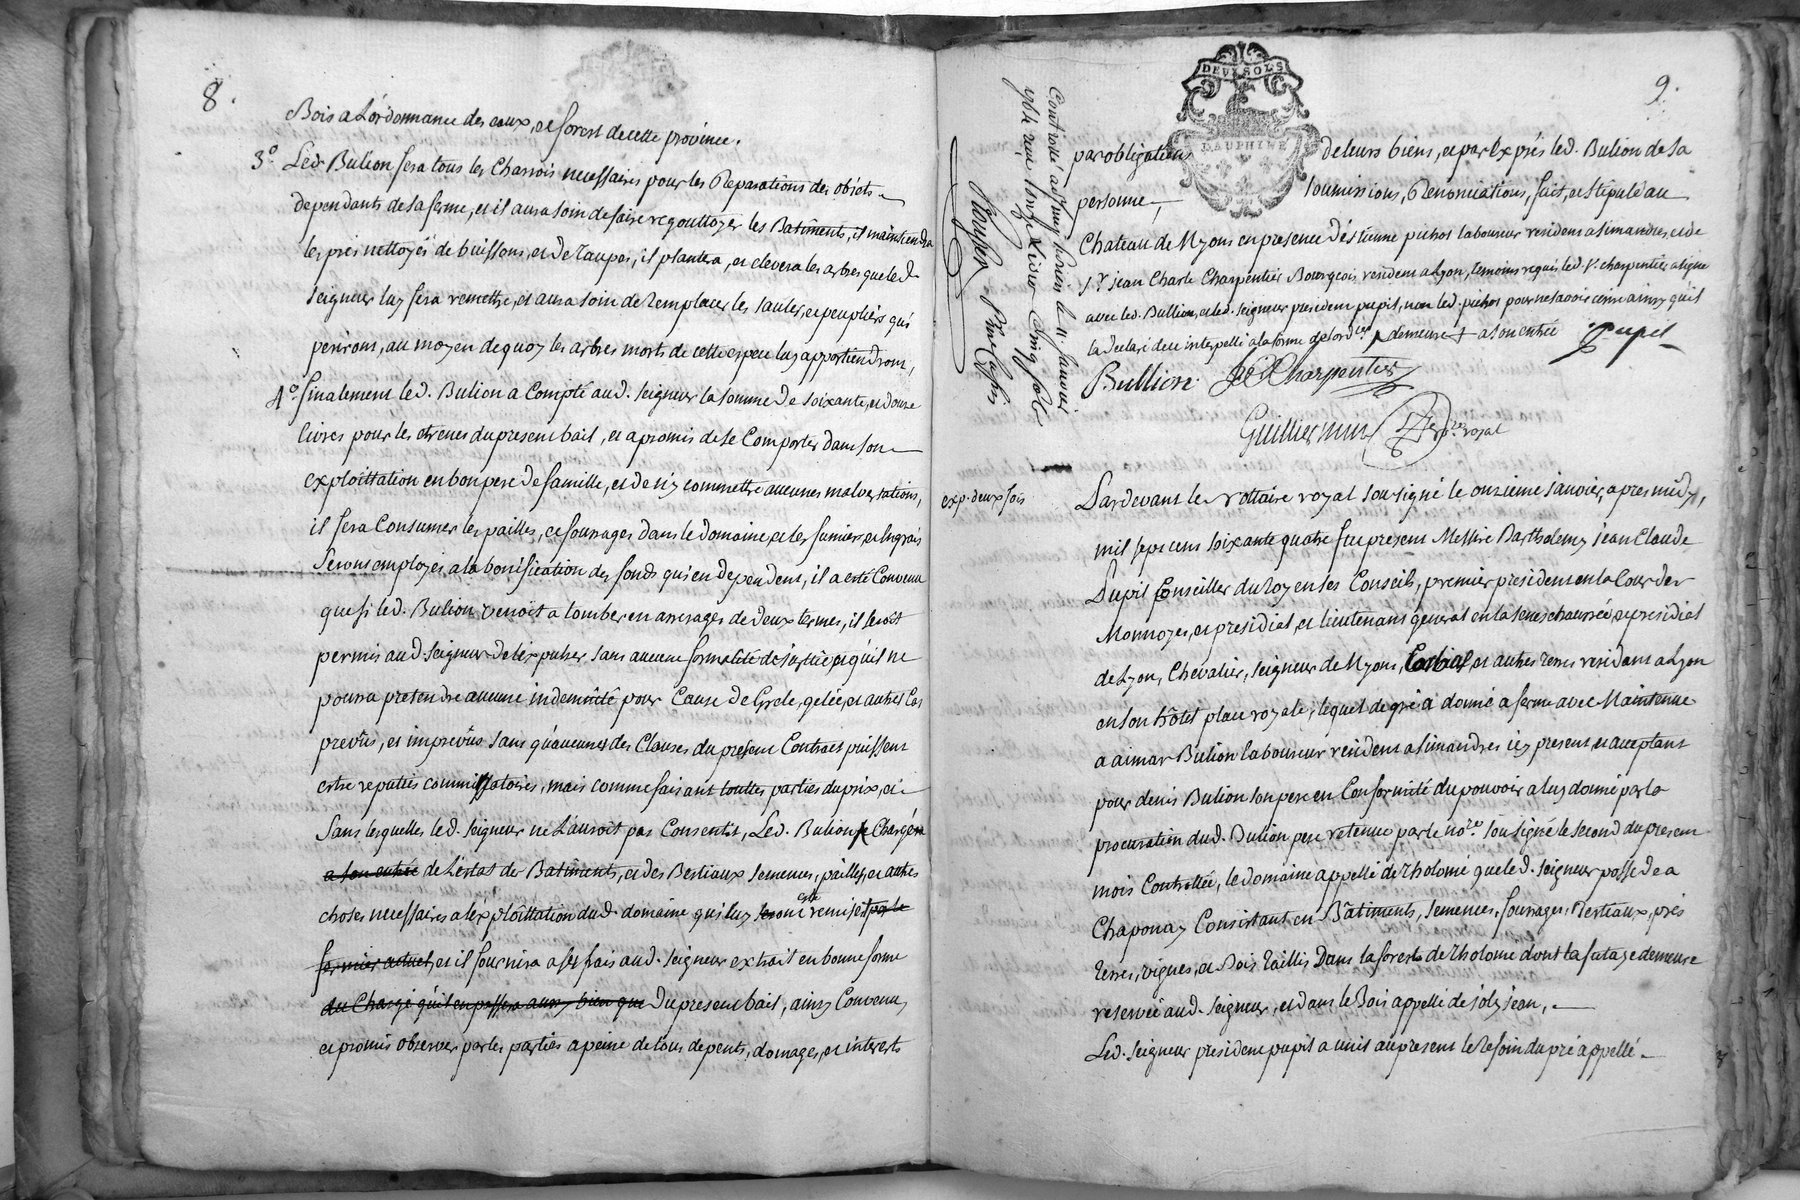 8.
Bois a L'ordonnance des eaux, et forest de cette province.
3.º Led. Bulion fera tous les Charrois necessaires pour les Reparations des objets
dependants de sa ferme, et il aura soin de faire regouttoyer les Batiments, il maintiendra
les prés nettoyés de buissons, et de taupes, il plantera, et elevera les arbres que led.
seigneur luy fera remettre, et aura soin de remplacer les saules, et peupliers qui
periront, au moyen de quoy les arbres morts de cette espece luy appartiendront,
4.º finalement led. Bulion a Compté aud. seigneur la somme de soixante, et douze
livres pour les etrenes du present bail, et a promis de se Comporter dans son
exploittation en bon pere de famille, et de n'y commettre aucunes malversations,
il fera Consumer les pailles, et fourages dans le domaine, et les fumiers, et Engrais
seront employés a la bonification des fonds qui en dependent, il a esté Convenu
que si led. Bulion venoit a tomber en arrerages de deux termes, il seroit
permis aud. seigneur de l'expulser sans aucune formalité de justice, et qu'il ne
poura pretendre aucune indemnité pour Cause de Grele, gelée, et autres Cas
prevûs, et imprevûs sans qu'aucunes des Clauses du present Contract puissent
estre reputées comminatoires, mais comme faisant touttes parties du prix, et
sans lesquelles led. seigneur ne L'auroit pas Consentit, Led. Bulion se Chargera
a son entrée de L'estat des Batiments, et des Bestiaux semences, pailles, et autres
choses necessaires a l'exploittation dud. domaine qui luy seront remises par le
fermier actuel, et il fournira a ses frais aud. seigneur extrait en bonne forme
du Chargé qu'il en passera aussy bien que Du present bail, ainsy Convenu,
et promis observer par les parties a peine de tous depents, domages, et interests
9.
DEUX SOLS
DAUPHINÉ
Controllé a
le 11 Janvier
livres Cinq sols
par obligations de leurs biens, et par Exprés led. Bulion de sa
personne, soumissions, Renonciations, fait, et stipulé au
Chateau de Myons en presence d'estienne pichot laboureur residant a simandres, et de
s.r jean Charle Charpentier Bourgeois residant a Lyon, temoins requis led. s.r charpentier a signé
avec led. Bullion, et led. seigneur president pupil, non led. pichot pour ne savoir ecrire ainsy qu'il
la declaré de ce interpellé a la forme de l'ord.ce demeure + a son entrée
Pupil
Bullion JC Charpentier
Guilliermin no.re royal
exp. deux fois
Pardevant le Nottaire royal sousigné le onzieme janvier, apres midy,
mil sept cent soixante quatre fut present Messire Barthelemy jean Claude
Pupil Conseiller du Roy en ses Conseils, premier president en la Cour des
Monnoyes, et presidial, et lieutenant general en la senechaussée, et presidial
de Lyon, Chevalier, seigneur de Myons, Corbas, et autres terres residant a Lyon
en son hôtel place royale, lequel de gré a donné a ferme avec Maintenue
a aimar Bulion laboureur residant a simandres icy present et acceptant
pour denis Bulion son pere en Conformité du pouvoir a luy donné par la
procuration dud. Bulion pere retenue par le no.re sousigné le second du present
mois Controllée, le domaine appellé de Rholomé que led. seigneur possede a
Chaponay Consistant en Bâtiments, semences, fourages, Bestiaux, prés
terres, vignes, et Bois taillis Dans la forest de Rholome dont la futaye demeure
reservée aud. seigneur, et dans le Bois appellé de joly jean,
Led. seigneur president pupil a unit au present le Besoin du pré appellé